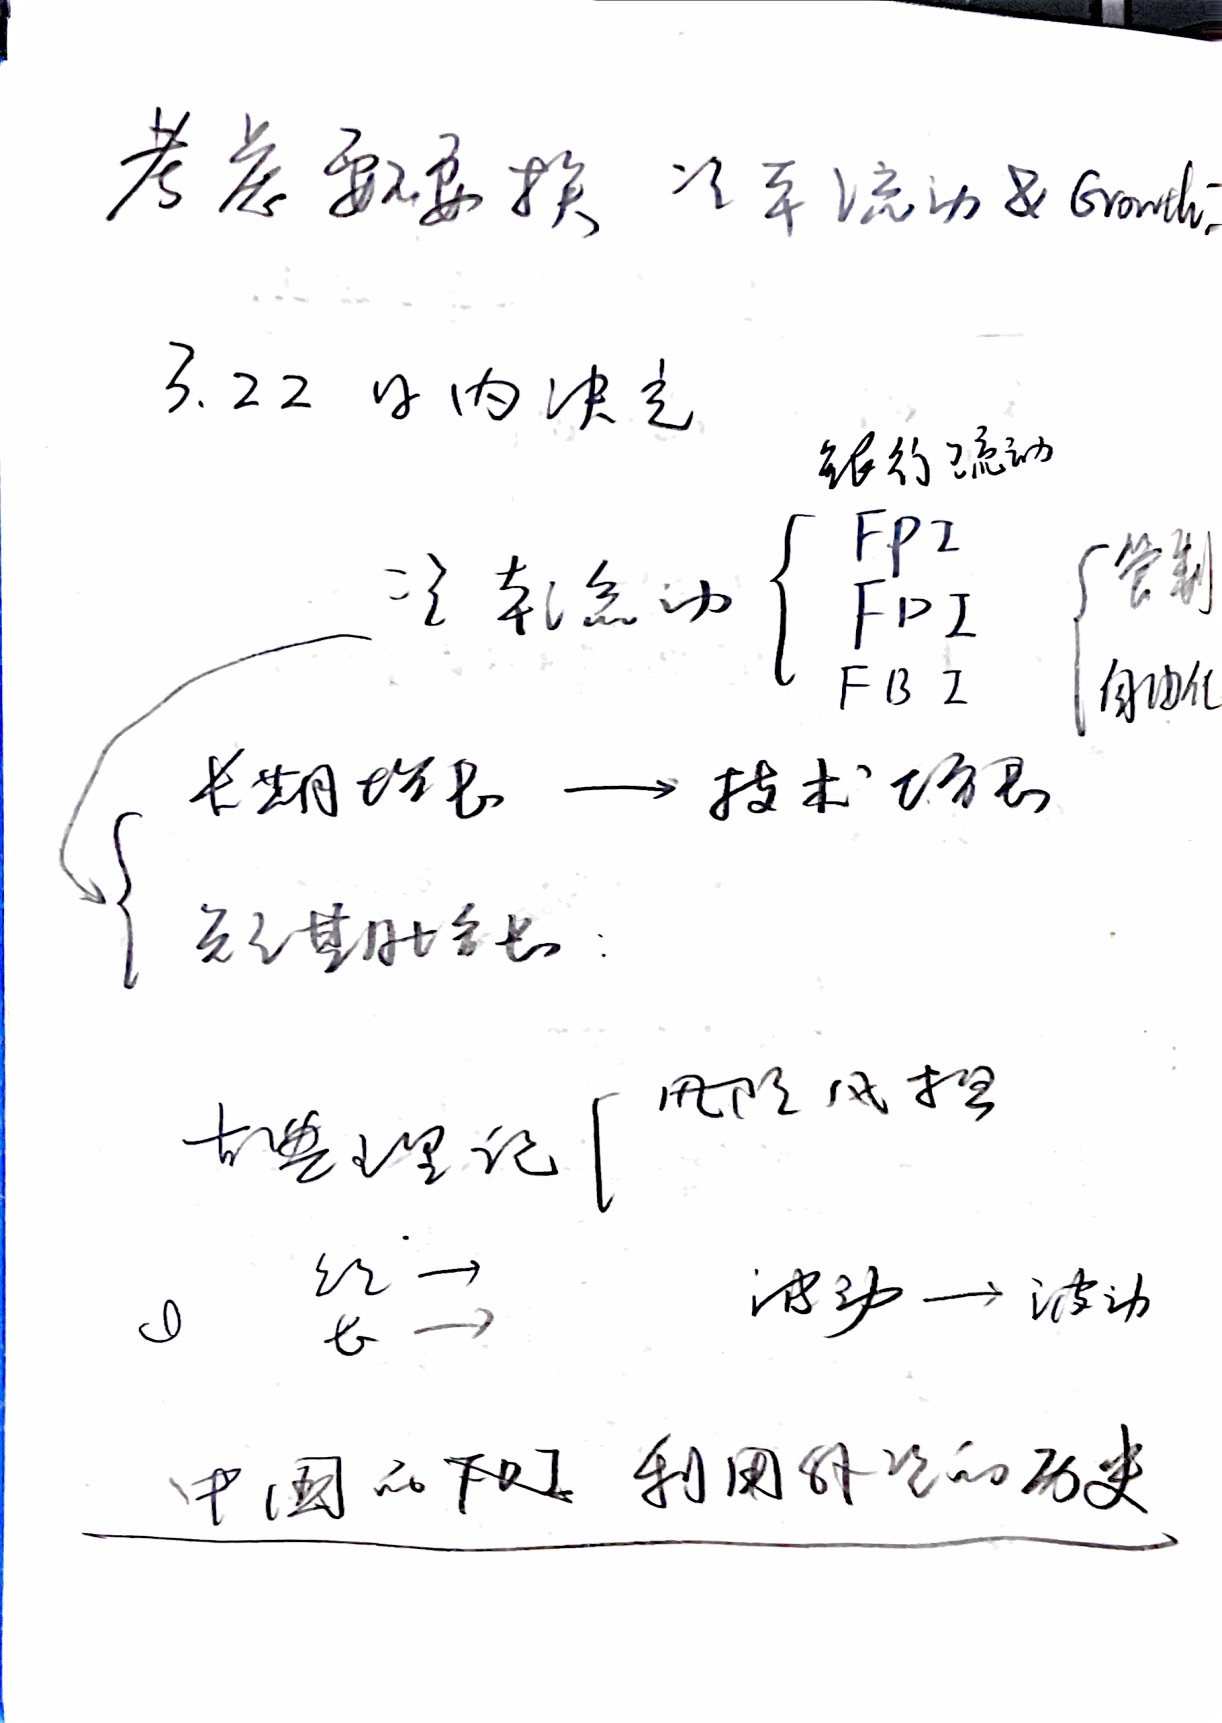 考虑要不要换 资本流动 & Growth:
3.22 日内决定
银行流动
资本流动 { FPI
FDI
FBI
{ 管制
自由化
长期增长 → 技术增长
短期增长:
古典理论 [ 风险
短 →
① 长 →
波动 → 波动
中国的FDI 利用外资的历史